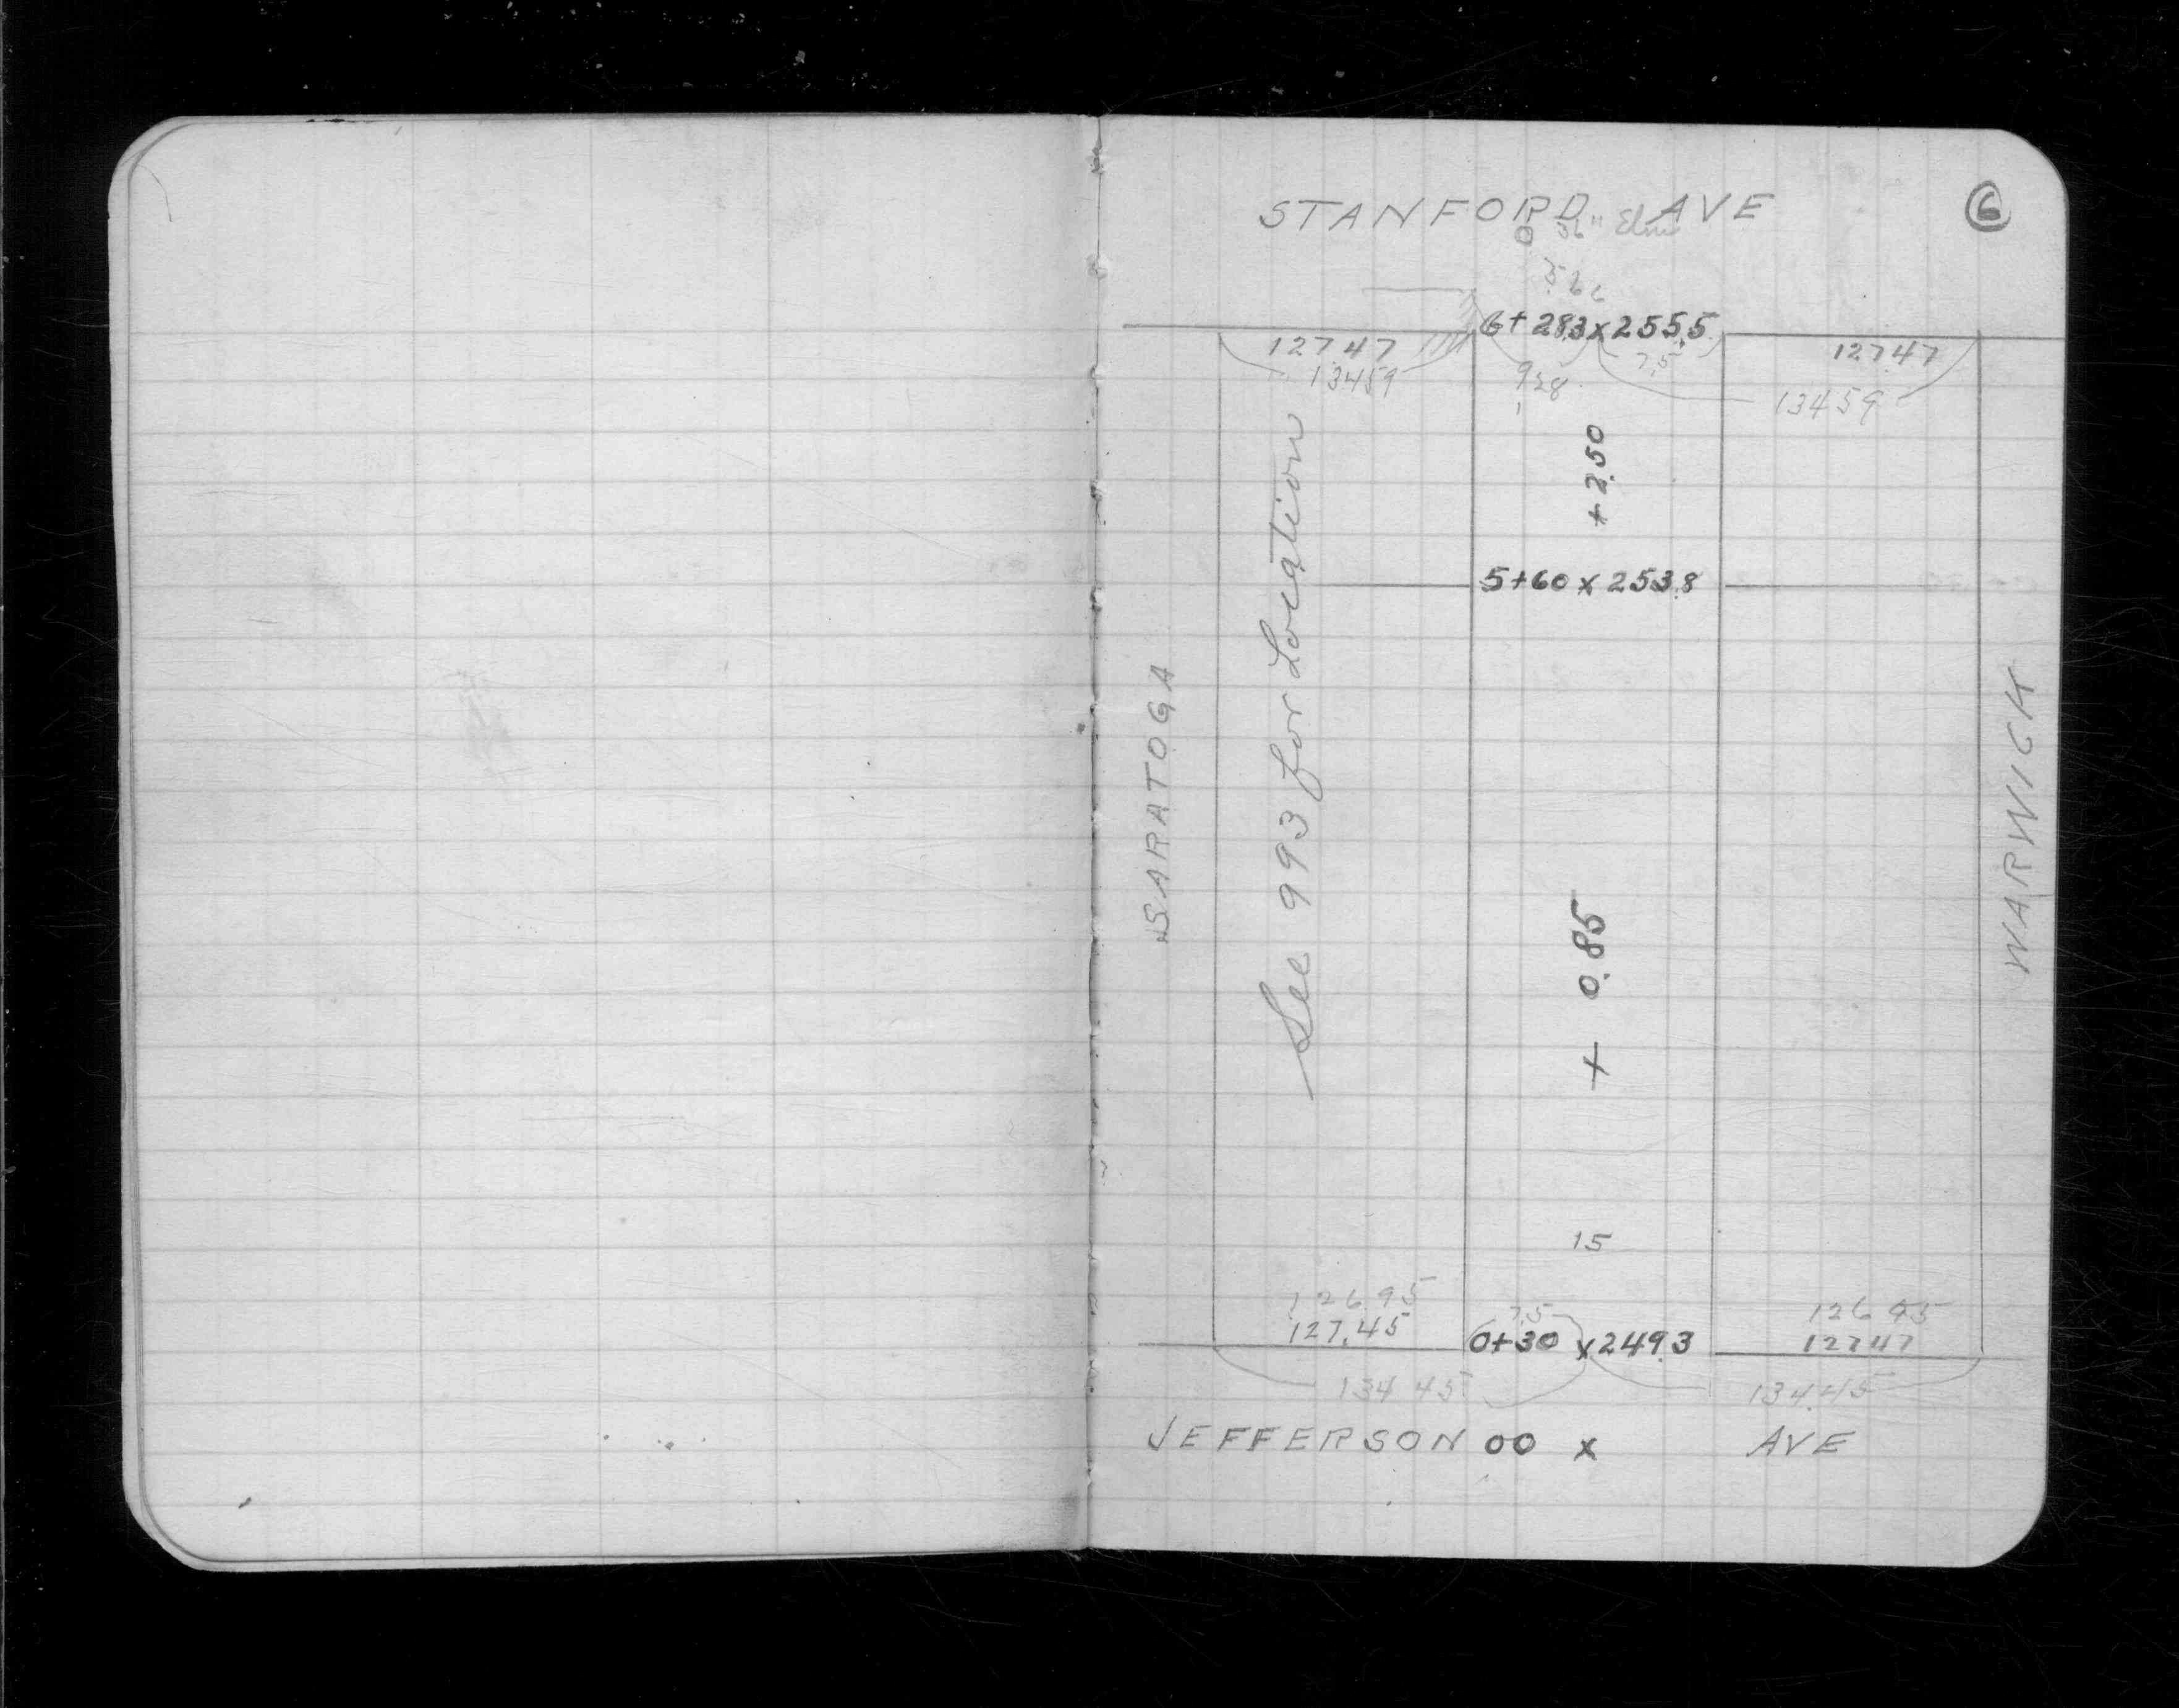 STANFORD AVE
6
36" Elm
566
6+283x255.5
127.47
127.47
134 59
928
7.5
134 59
+2.50
5+60 x 253.8
See 993 for Location
SARATOGA
WARWICK
+ 0.85
15
126.95
7.5
126 95
127.45
0+30 x 249.3
127 47
134 45
134.45
JEFFERSON 00 x AVE